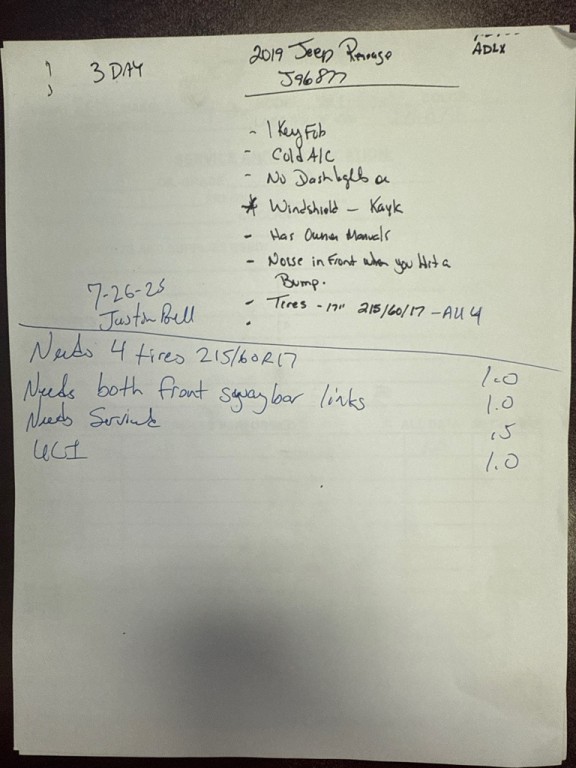 3 DAY
2019 Jeep Renegade
ADLX
- 1 Key Fob
- Cold A/C
- No Dash lights on
* Windshield -
- Has Owner Manuals
- Noise in Front when you Hit a
Bump.
- Tires - 17" 215/60/17 - All 4
7-26-25
Needs 4 tires 215/60R17 1.0
Needs both front swaybar links 1.0
Needs Service .5
UCI 1.0